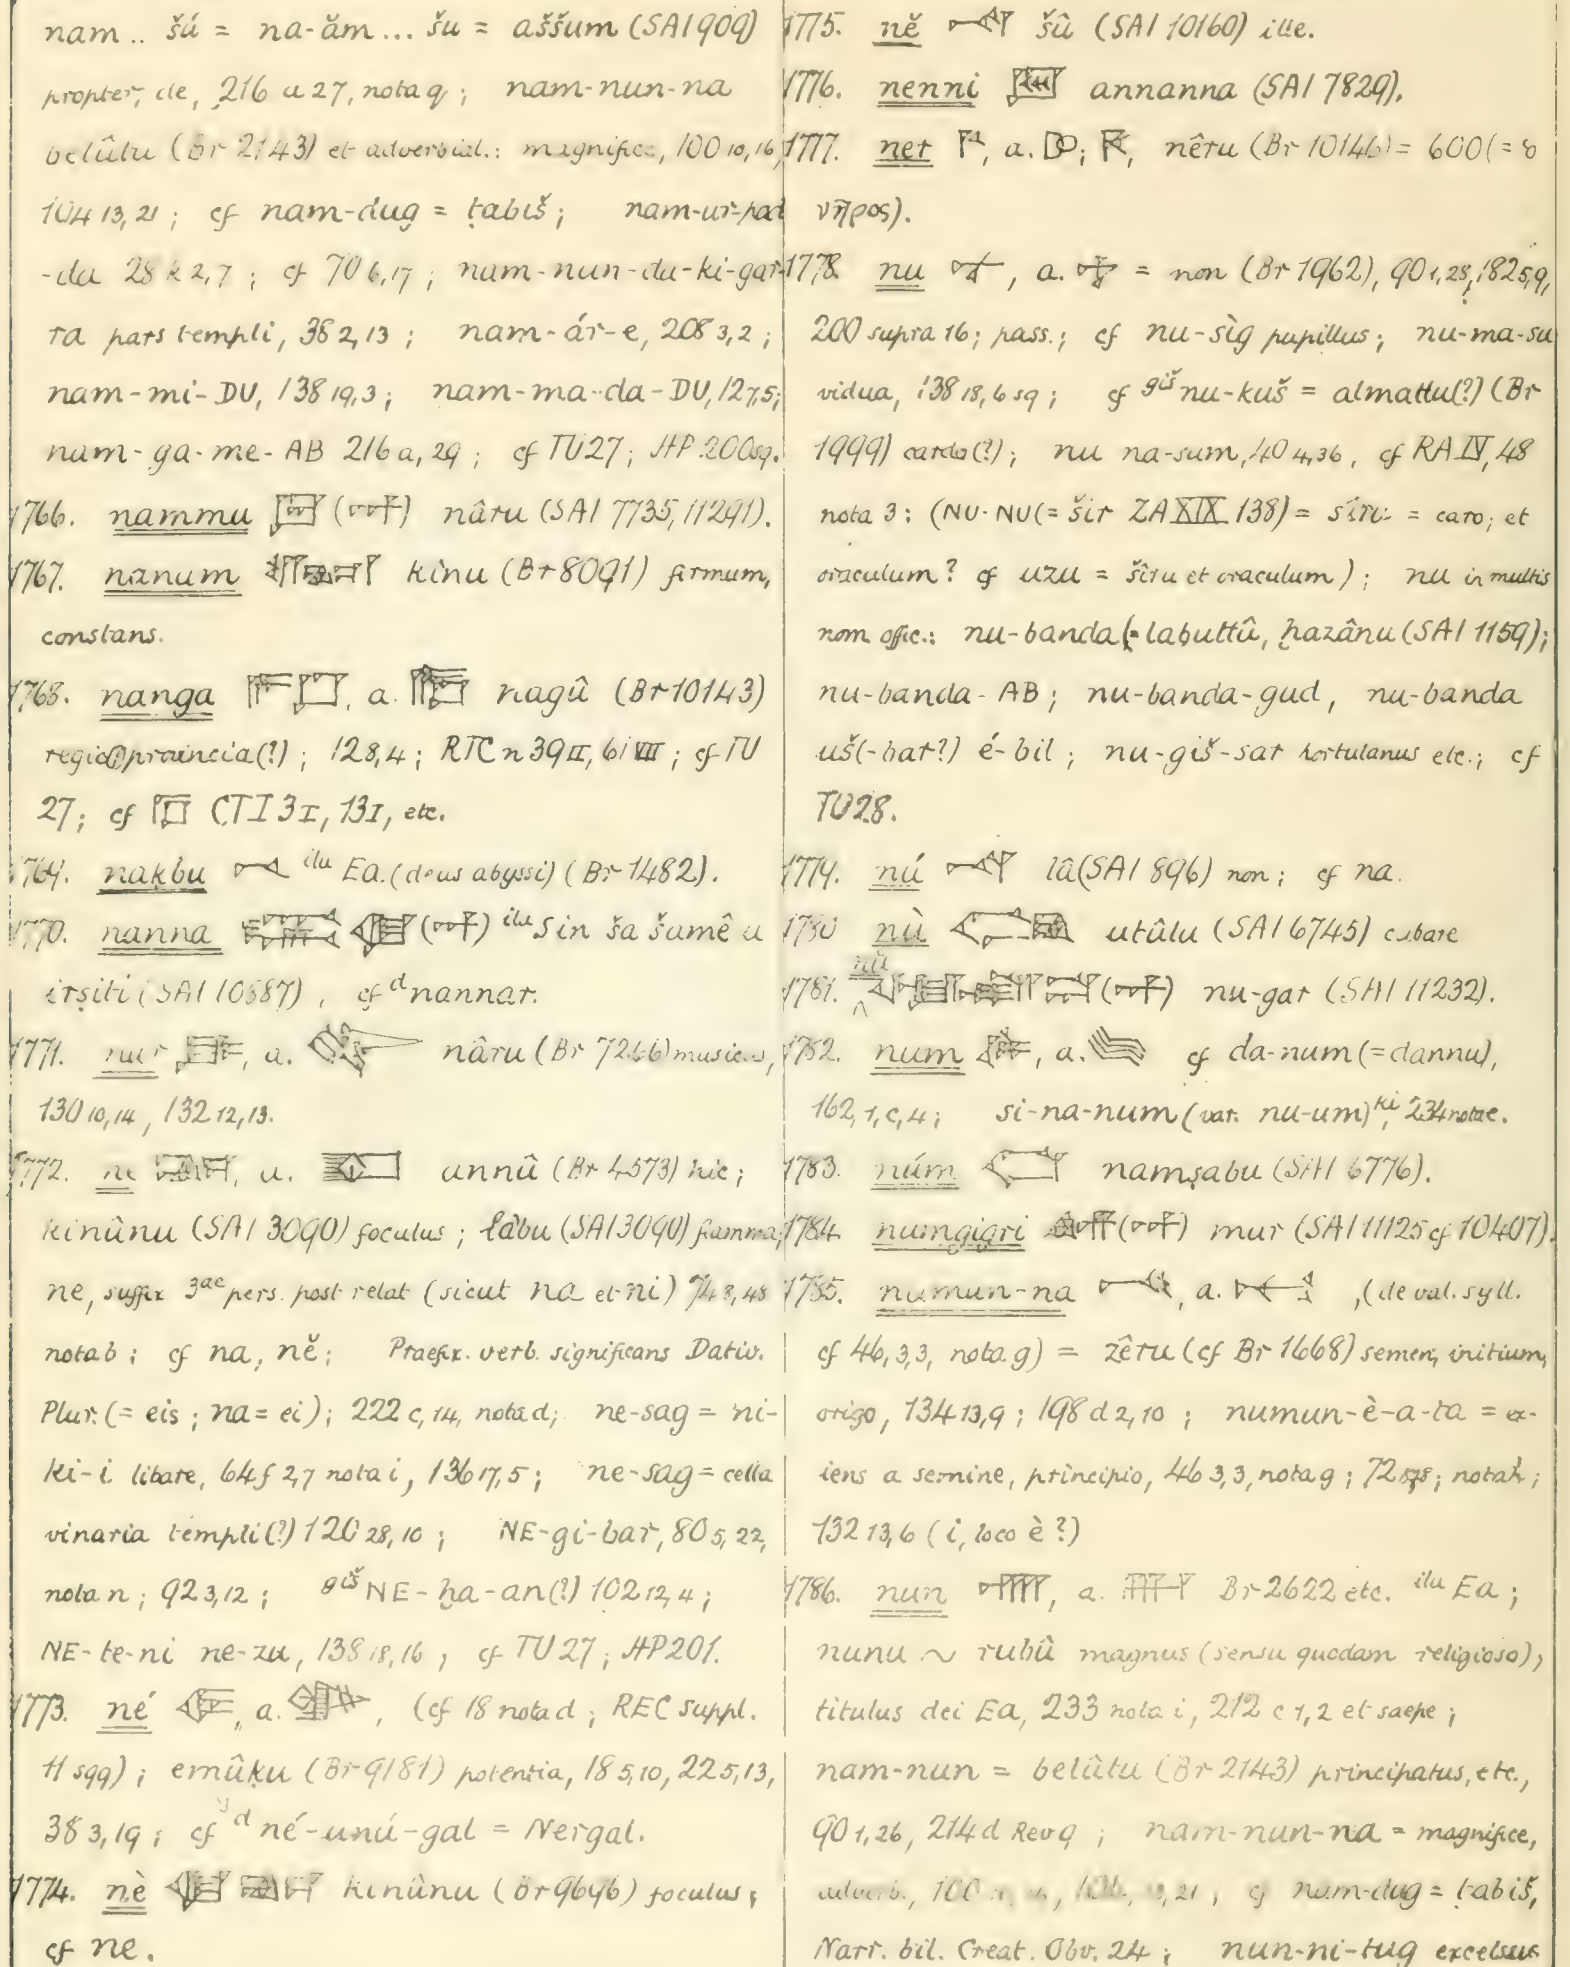 nam .. šú = na-ăm ... šu = aššum (SAI 909)
propter, de, 216 a 27, nota q; nam-nun-na
belûtu (Br 2143) et adverbial.: magnifice, 100 10, 16,
104 13, 21; cf nam-dug = ṭabiš; nam-ur-pad
-da 28 k 2, 7; cf 70 6, 17; nam-nun-du-ki-gar-
ra pars templi, 38 2, 13; nam-ár-e, 208 3, 2;
nam-mi-DU, 138 19, 3; nam-ma-da-DU, 127, 5;
nam-ga-me-AB 216 a, 29; cf TU 27; HP 200 sq.
1766. nammu nâru (SAI 7735, 11291).
1767. nanum kînu (Br 8091) firmum,
constans.
1768. nanga , a. nagû (Br 10143)
regio provincia (?); 128, 4; RTC n 39 II, 61 VIII; cf TU
27; cf CT I 3 I, 13 I, etc.
1769. naḳbu ilu Ea. (deus abyssi) (Br 1482).
1770. nanna ilu Sin ša šamê u
irṣiti (SAI 10687), cf d nannar.
1771. nar , a. nâru (Br 7266) musicus,
130 10, 14, 132 12, 13.
1772. ne , a. annû (Br 4573) hic;
kinûnu (SAI 3090) foculus; lâbu (SAI 3090) flamma;
ne, suffix 3ae pers. post relat (sicut na et ni) 74 8, 48
nota b; cf na, nĕ; Praefix. verb. significans Dativ.
Plur. (= eis; na = ei); 222 c, 14, nota d; ne-sag = ni-
ki-i libare, 64 f 2, 7 nota i, 136 17, 5; ne-sag = cella
vinaria templi (?) 120 28, 10; NE-gi-bar, 80 5, 22,
nota n; 92 3, 12; giš NE-ḫa-an (?) 102 12, 4;
NE-te-ni ne-zu, 138 18, 16, cf TU 27; HP 201.
1773. né , a. , (cf 18 nota d; REC suppl.
11 sqq); emûḳu (Br 9181) potentia, 18 5, 10, 22 5, 13,
38 3, 19; cf d né-unú-gal = Nergal.
1774. nè kinûnu (Br 9696) foculus;
cf ne.
1775. nĕ šû (SAI 10160) ille.
1776. nenni annanna (SAI 7829).
1777. ner , a. ; , nêru (Br 10146) = 600 (= ὁ
νῆρος).
1778. nu , a. = non (Br 1962), 90 1, 28, 182 5, 9,
200 supra 16; pass.; cf nu-sìg pupillus; nu-ma-su
vidua, 138 18, 6 sq; cf giš nu-kuš = almattu (?) (Br
1999) cardo (?); nu na-sum, 40 4, 36, cf RA IV, 48
nota 3: (NU-NU (= šir ZA XIX 138) = šîru = caro; et
oraculum? cf uzu = šîru et oraculum); nu in multis
nom offic.: nu-banda (= labuttû, ḫazânu (SAI 1159);
nu-banda-AB; nu-banda-gud, nu-banda
uš(-bar?) é-bil; nu-giš-sar hortulanus etc.; cf
TU 28.
1779. nú lâ (SAI 896) non; cf na.
1780 nù utûlu (SAI 6745) cubare
1781. nŭ nu-gar (SAI 11232).
1782. num , a. cf da-num (= dannu),
162, 1, c, 4; si-na-num (var. nu-um) ki, 234 notae.
1783. núm namṣabu (SAI 6776).
1784. numgigri mur (SAI 11125 cf 10407).
1785. numun-na , a. , (de val. syll.
cf 46, 3, 3, nota g) = zêru (cf Br 1668) semen, initium,
origo, 134 13, 9; 198 d 2, 10; numun-è-a-ta = ex-
iens a semine, principio, 46 3, 3, nota g; 72 ; nota h;
132 13, 6 (i, loco è?)
1786. nun , a. Br 2622 etc. ilu Ea;
nunu ~ rubû magnus (sensu quodam religioso),
titulus dei Ea, 233 nota i, 212 c 1, 2 et saepe;
nam-nun = belûtu (Br 2143) principatus, etc.,
90 1, 26, 214 d Rev 9; nam-nun-na = magnifice,
adverb., 100 , 21, cf nam-dug = ṭabiš,
Narr. bil. Creat. Obv. 24; nun-ni-tug excelsus